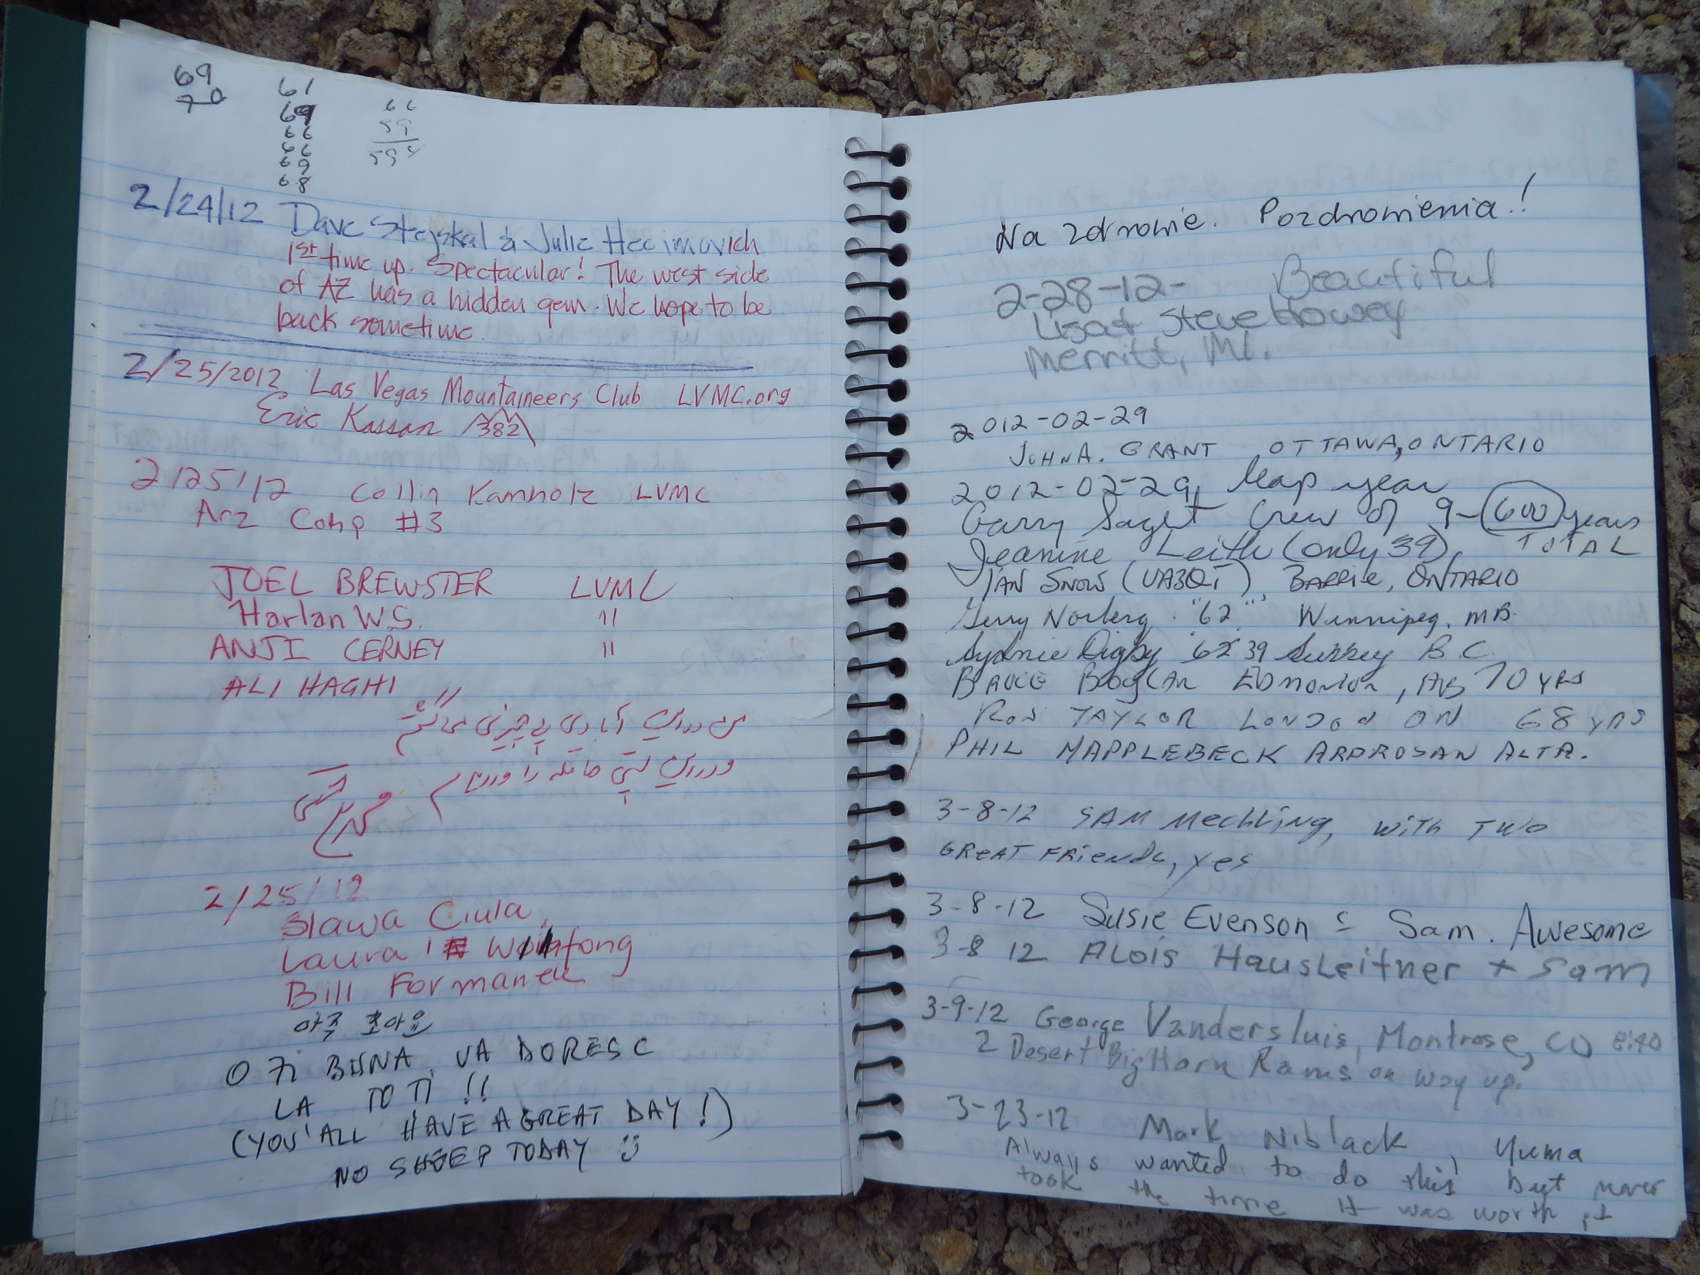 69
70
61
69
66
66
69
68
66
59
2/24/12 Dave Stejskal & Julie Hecimovich
1st time up. Spectacular! The west side
of AZ has a hidden gem. We hope to be
back sometime.
2/25/2012 Las Vegas Mountaineers Club LVMC.org
Eric Kassan 382
2/25/12 Collin Kamholz LVMC
Arz Comp #3
JOEL BREWSTER LVMC
Harlan W.S. "
ANJI CERNEY "
ALI HAGHI
2/25/12
Slawa Ciula,
Laura
Bill Formanek
아주 조아요
O ZI BUNA VA DORESC
LA TOTI !!
(YOU'ALL HAVE A GREAT DAY!)
NO SHEEP TODAY
Na zdrowie. Pozdrowienia!
2-28-12- Beautiful
Lisa & Steve Howey
Merritt, MI.
2012-02-29
JOHN A. GRANT OTTAWA, ONTARIO
2012-02-29, leap year
Garry Saget Crew of 9-600 years
Jeanine Leith (only 39) TOTAL
IAN SNOW (VA3QT) BARRIE, ONTARIO
Gerry Norberg "62" Winnipeg, MB.
Digby 62 39 Surrey B.C.
Edmonton, 70 YRS
RON TAYLOR LONDON ON 68 YRS
PHIL MAPPLEBECK ARDROSAN ALTA.
3-8-12 SAM Mechling, with TWO
GREAT FRIENDS, yes
3-8-12 Susie Evenson Sam. Awesome
3-8 12 Alois Hausleitner + Sam
3-9-12 George Vandersluis, Montrose, CO 8:40
2 Desert BigHorn Rams on way up.
3-23-12 Mark Niblack, Yuma
Always wanted to do this but never
took the time It was worth it